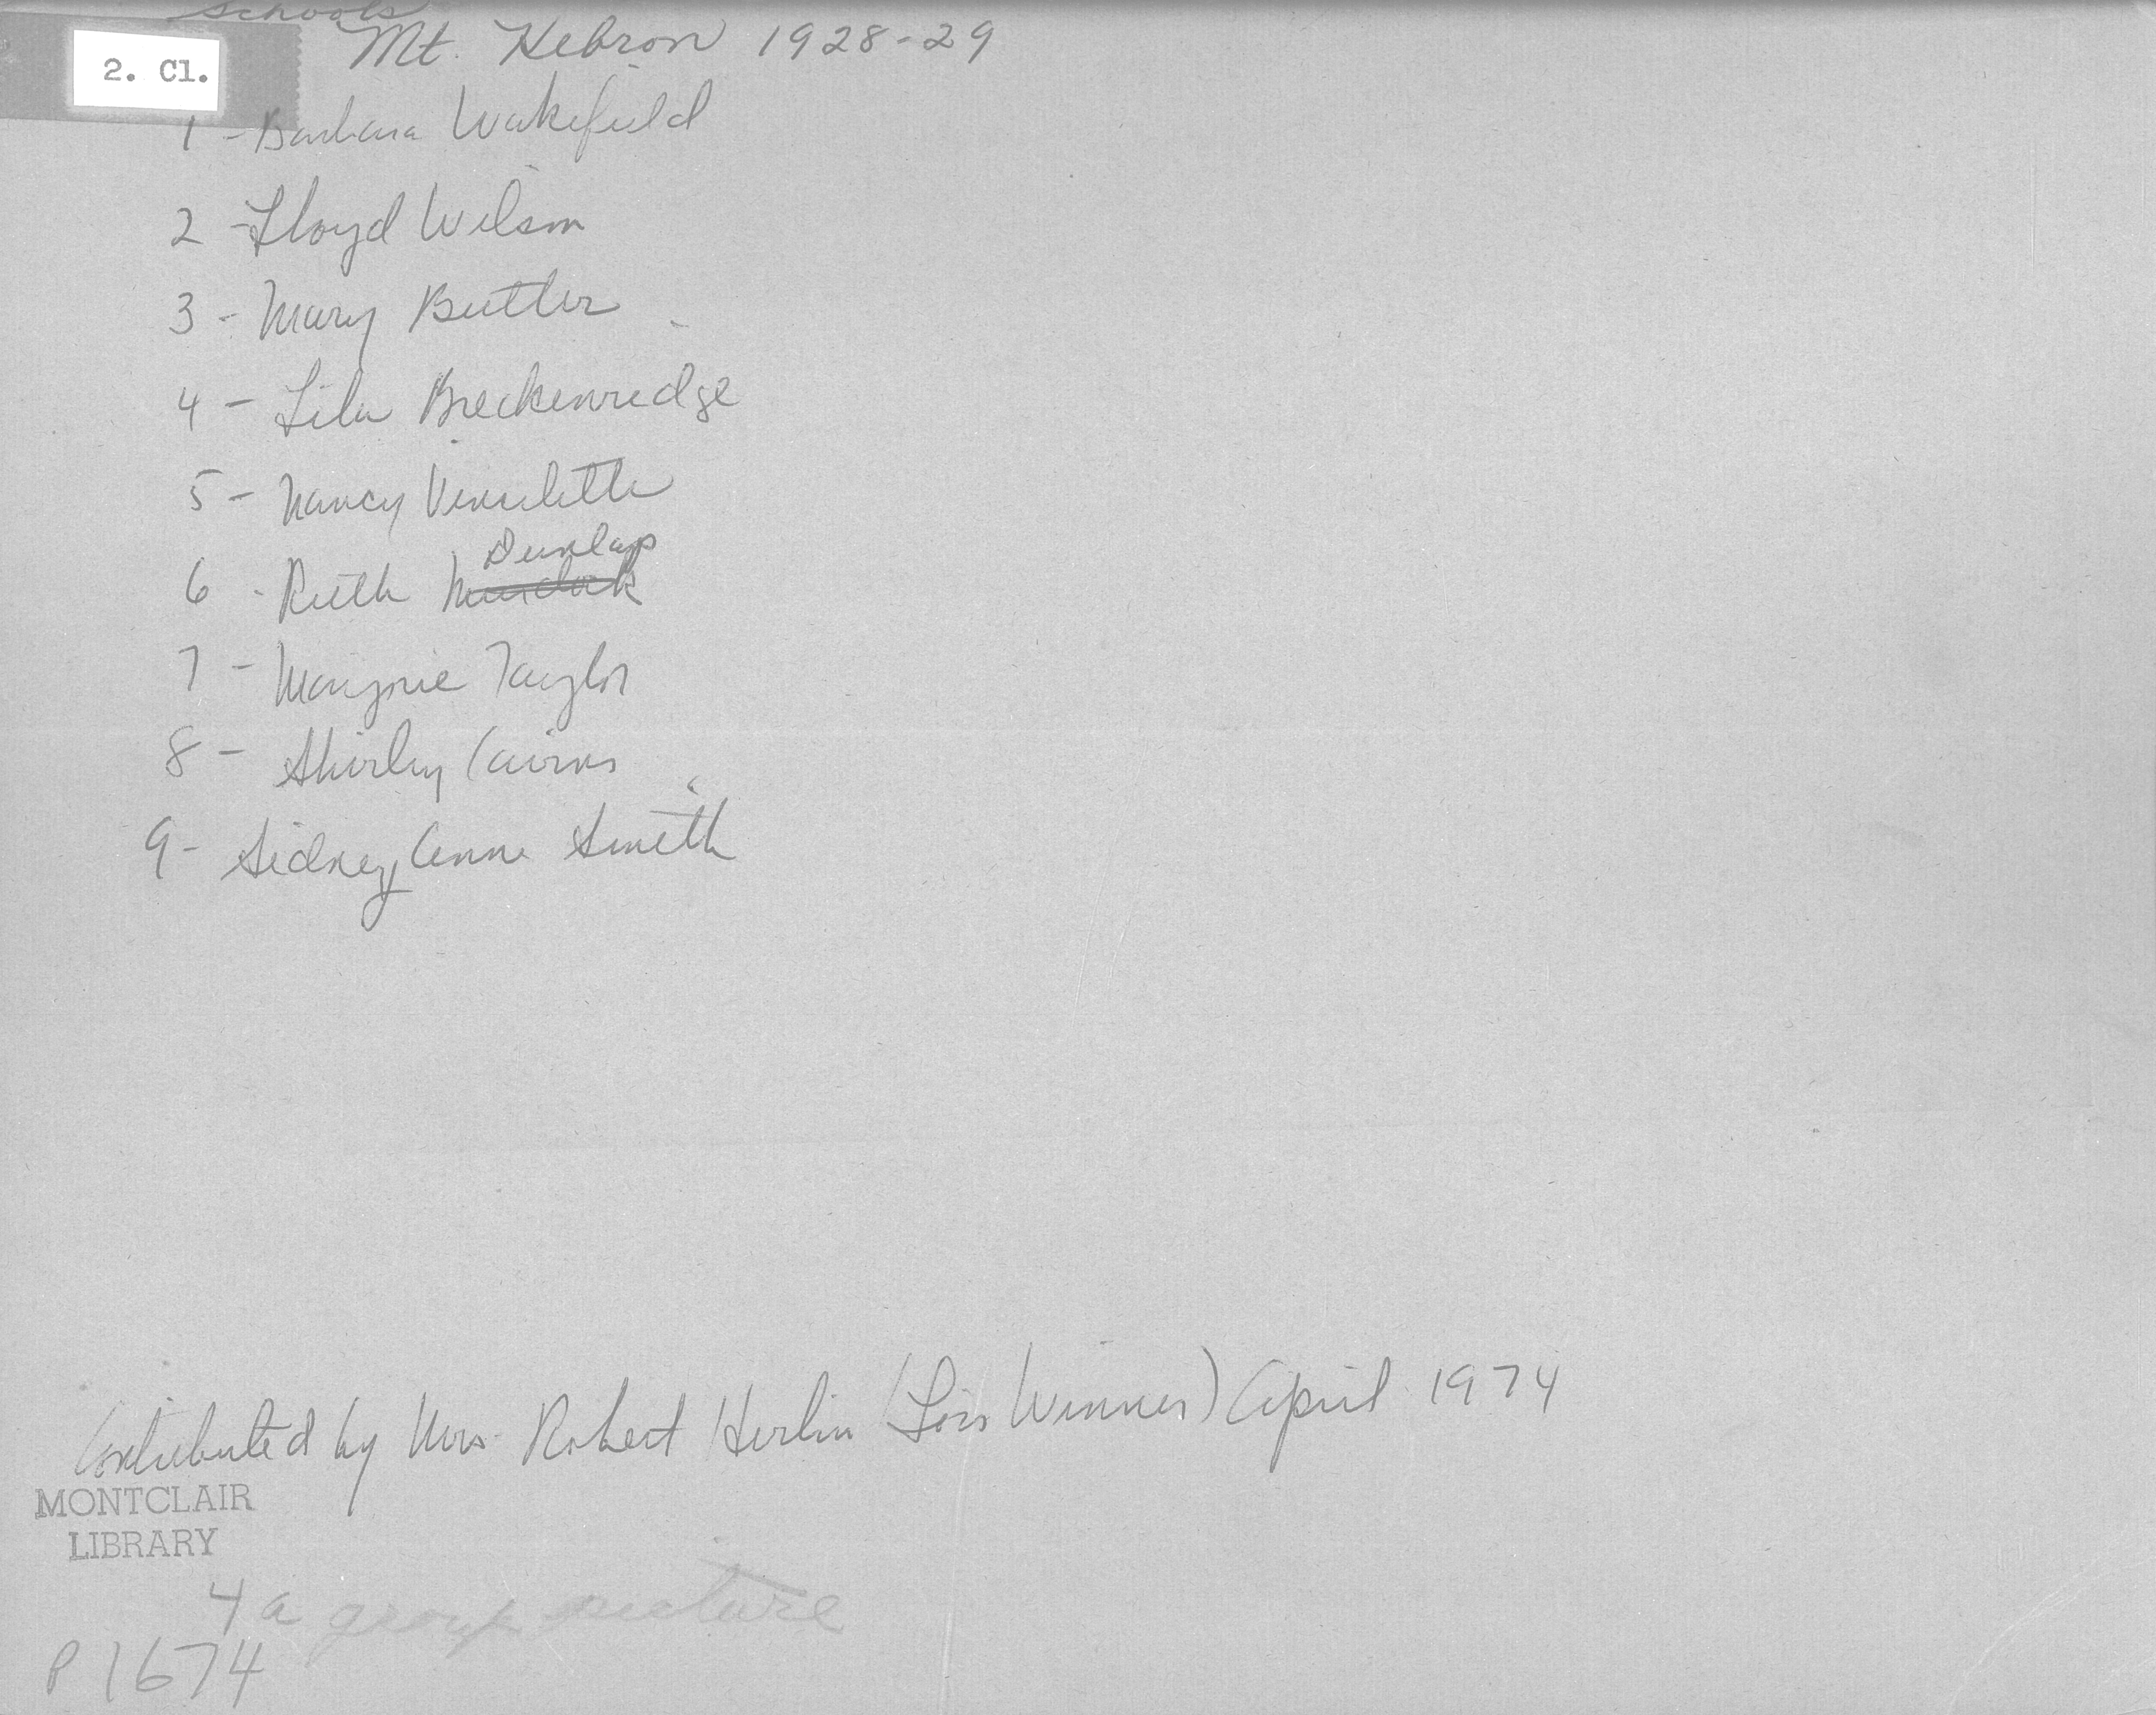 Schools
Mt. Hebron 1928-29
2. Cl.
1 - Barbara Wakefield
2 - Lloyd Wilson
3 - Mary Butler
4 - Lila Breckenridge
5 - Nancy
Dunlap
6 - Ruth Murdock
7 - Marjorie Taylor
8 - Shirley Cairns
9 - Sidney Anne Smith
Contributed by Mrs. Robert Herlin (Lois Winner) April 1974
MONTCLAIR
LIBRARY
4a group picture
P 1674